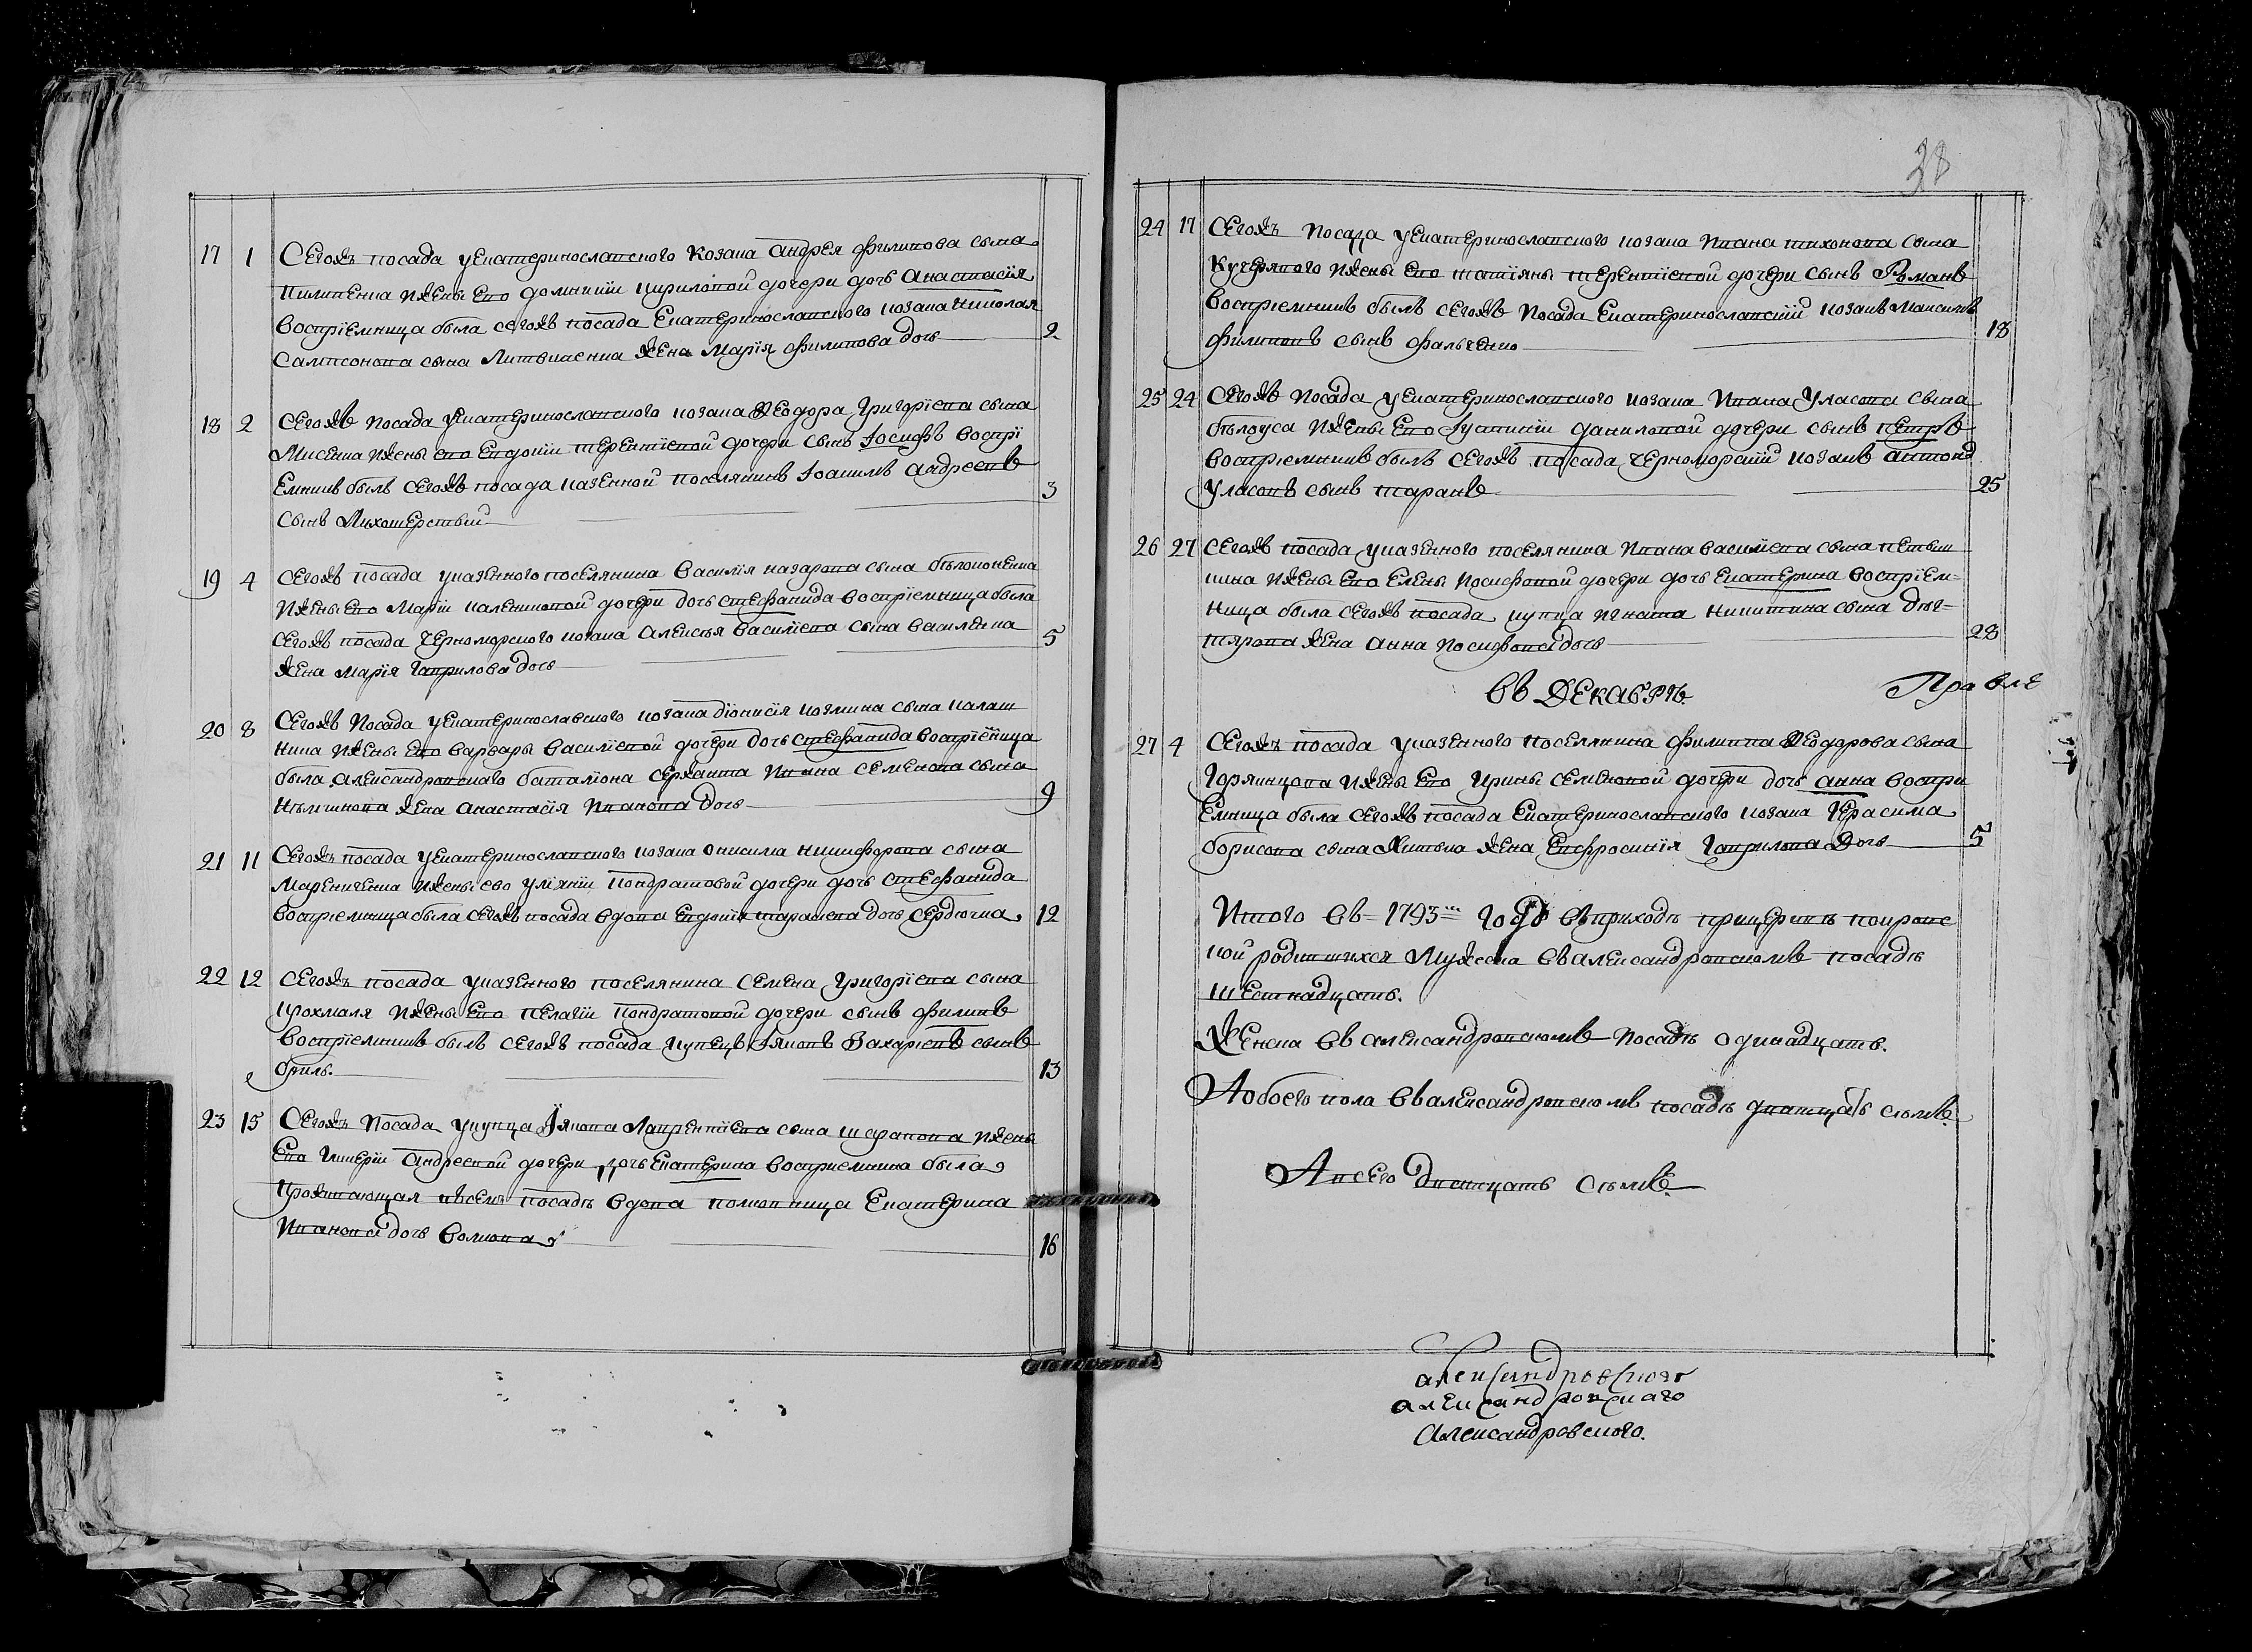 17 1 Сегожъ посада уЕкатеринославского козака Андрея Филипова сына
Пилипенка ижены Его домникии кириловой дочери дочь Анастасїя
воспрїемница была сегожъ посада Екатеринославского козака николая
Сампсонова сына Литвиненка жена Марїя Филипова дочь 2
18 2 Сегожъ посада уЕкатеринославского козака Ѳеодора Григорїева сына
Лисенка ижены его Евдокїи терентїевой дочери сынъ Іосифъ воспрї
Емникъ былъ Сегожъ посада казенной поселянинъ Іоакимъ Андреевъ 3
Сынъ Лихошерстый
19 4 Сегожъ посада указенного поселянина василїя назарова сына бѣлоконенка
ижены Его Марїи калениковой дочери дочь Стефанида воспрїемница была
Сегожъ посада Черноморского козака Алексѣя василїева сына василенка 5
жена Марїя Гаврилова дочь
20 8 Сегожъ посада уЕкатеринославского козака дїонисїя козмина сына калаш
ника ижены Его варвары василїевой дочери дочь Стефанида воспрїемница
была Александровскаго баталїона Сержанта ивана Семенова сына
жена Анастасїя иванова дочь 9
21 11 Сегожъ посада уЕкатеринославского козака Онисима никифорова сына
Марениченка ижены ево улїянїи кондратовой дочери дочь Стефанида
воспрїемница была Сегожъ посада вдова Евдокїя тарасиева дочь Сердючка 12
22 12 Сегожъ посада указенного поселянина Семена Григорїева сына
крохмаля ижены Его пелагїи кондратовой дочери сынъ Филипъ
воспрїемникъ былъ Сегожъ посада купецъ Іяковъ Захарїевъ сынъ
бриль. 13
23 15 Сегожъ посада укупца Їякова Лаврентїева сына шарапова ижены
Его гликерїи Андреевой дочери дочь Екатерина восприемника была
проживающая въсемъ посадѣ вдова полковница Екатерина
иванова дочь волкова 16
38
24 17 Сегожъ посада уЕкатеринославского козака ивана тихонова сына
кучерявого ижены Его татїяны терентїевой дочери сынъ Романъ
воспрїемникъ былъ сегожъ посада Екатеринославскїй козакъ Максимъ
Филиповъ сынъ Фальченко 18
25 24 Сегожъ посада уЕкатеринославского козака ивана уласова сына
бѣлоуса ижены Его Іустинїи даниловой дочери сынъ петръ
воспрїемникъ былъ Сегожъ посада черноморскїй козакъ Антонъ
уласовъ сынъ таранъ 25
26 27 Сегожъ посада указенного поселянина ивана василїева сына
ижены Его Елены иосифовой дочери дочь Екатерина воспрїем=
ница была сегожъ посада купца игната никитина сына дег=
тярова жена Анна иосифова дочь 28
въ Декабрѣ.
27 4 Сегожъ посада указенного поселянина Филиппа Ѳеодорова сына
Горяинцова ижены Его ирины семеновой дочери дочь Анна воспри
Емница была Сегожъ посада Екатеринославского козака Герасима
борисова сына жена Евфросинїя Гаврилова дочь 5
Итого въ= 1793мъ Году въприходѣ прицеркви покровс
кой родившихся Мужеска въАлександровскомъ посадѣ
шестнадцать.
Женска въ Александровскомъ посадѣ одинадцать.
Аобоего пола въАлександровскомъ посадѣ дватцать сѣмъ.
Авсего дватцать сѣмъ.
Александровского
Александровскаго
Александровского.